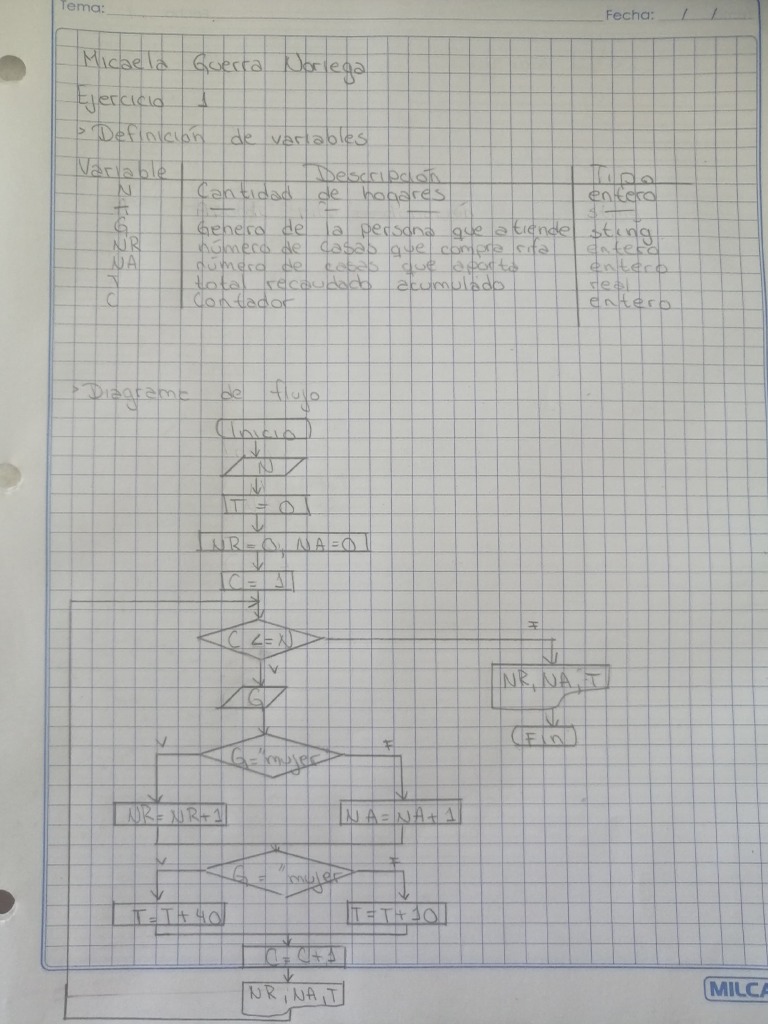 Tema:
Fecha: / /
Micaela Guerra Noriega
Ejercicio 1
> Definición de variables
Variable Descripción Tipo
N Cantidad de hogares entero
G Genero de la persona que atiende sting
NR número de casas que compra rifa entero
NA número de casas que aporta entero
T total recaudado acumulado real
C Contador entero
> Diagrama de flujo
Inicio
N
T = 0
NR=0, NA=0
C = 1
C <= N
F
V
NR, NA, T
G
Fin
V G="mujer F
NR=NR+1 NA=NA+1
V G = "mujer F
T=T+40 T=T+10
C=C+1
NR, NA, T
MILCA